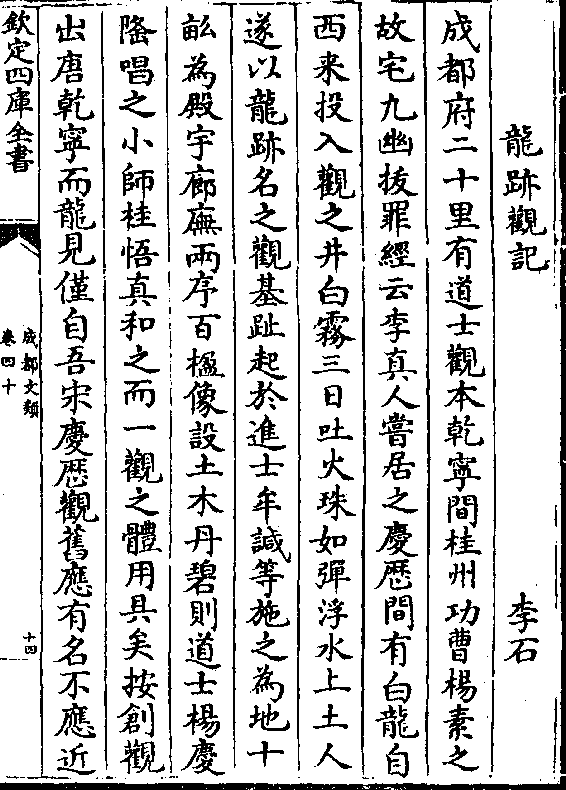 龍跡觀記 李石
成都府二十里有道士觀本乾寧間桂州功曹楊素之
故宅九幽拔罪經云李真人嘗居之慶厯間有白龍自
西来投入觀之井白霧三日吐火珠如彈浮水上土人
遂以龍跡名之觀基趾起於進士牟諴等施之為地十
畝為殿宇廊廡兩序百楹像設土木丹碧則道士楊慶
隆唱之小師桂悟真和之而一觀之體用具矣按創觀
出唐乾寧而龍見僅自吾宋慶厯觀舊應有名不應近
欽定四庫全書
成都文類
卷四十
十四